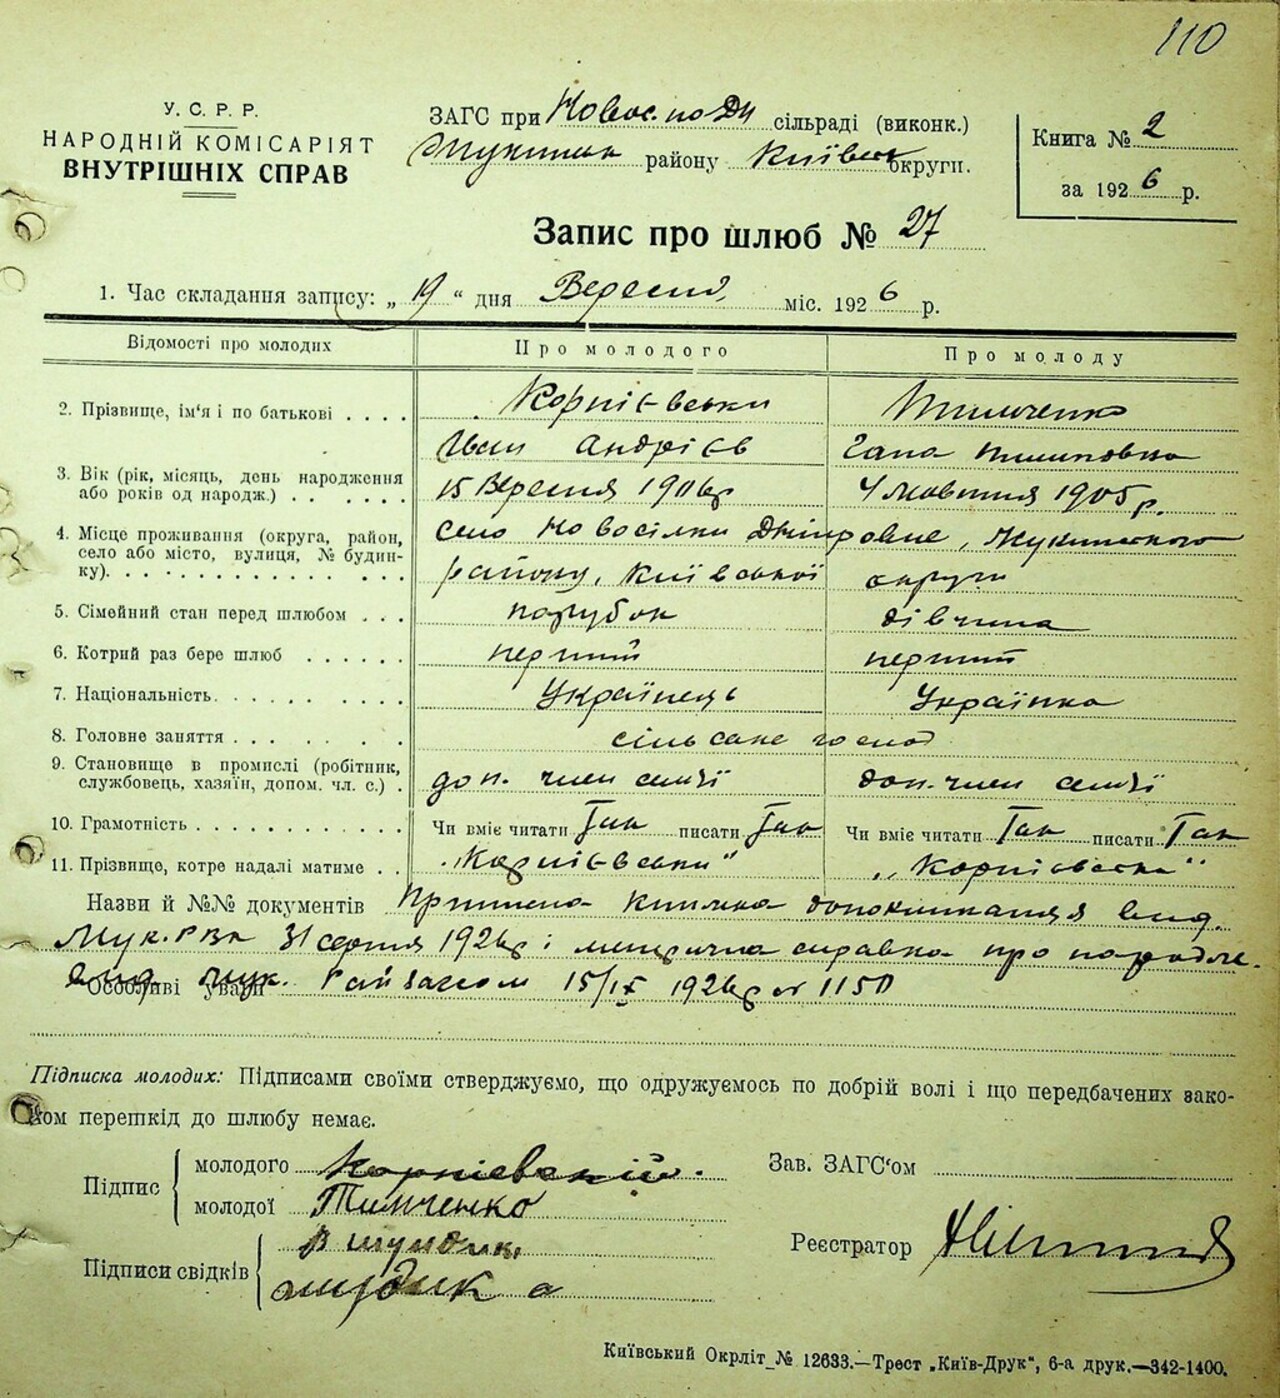 110
У. С. Р. Р.
НАРОДНІЙ КОМІСАРІЯТ
ВНУТРІШНІХ СПРАВ
ЗАГС при Новос. по Дн сільраді (виконк.)
району Київськ округи.
Книга № 2
за 1926 р.
Запис про шлюб № 27
1. Час складання запису: „ 19 “ дня Вересня міс. 1926 р.
Відомості про молодих
Про молодого
Про молоду
2. Прізвище, ім'я і по батькові . . . .
Корнієвськи
Тимченко
Іван Андрієв
Гана Пилиповна
3. Вік (рік, місяць, день народження
або років од народж.) . . . . . . .
15 Вересня 1906 р
4 Жовтня 1905 р.
4. Місце проживання (округа, район,
село або місто, вулиця, № будин-
ку). . . . . . . . . . . . . . .
село Новосілки Дніпровие, Жукинского
району, Київської округи
5. Сімейний стан перед шлюбом . . .
парубок
дівчина
6. Котрий раз бере шлюб . . . . . .
перший
перший
7. Національність. . . . . . . . . .
Українець
Українка
8. Головне заняття . . . . . . . .
сільське господ
9. Становище в промислі (робітник,
службовець, хазяїн, допом. чл. с.) .
доп. член семї
доп. член семї
10. Грамотність . . . . . . . . . . . .
Чи вміє читати Так писати Так
Чи вміє читати Так писати Так
11. Прізвище, котре надалі матиме . .
„Корнієвськи“
„Корнієвська“
Назви й №№ документів книжка вид.
31 серпня 1926 р і метрична справка про народже.
Особливі уваги
вид. Жук. Райзагсом 15/IX 1926 р № 1150
Підписка молодих: Підписами своїми стверджуємо, що одружуємось по добрій волі і що передбачених зако-
ном перешкід до шлюбу немає.
Підпис
молодого Корніевский.
молодої Тимченко
Підписи свідків
Зав. ЗАГС'ом
Реєстратор
Київський Окрліт № 12633.—Трест „Київ-Друк“, 6-а друк.—342-1400.